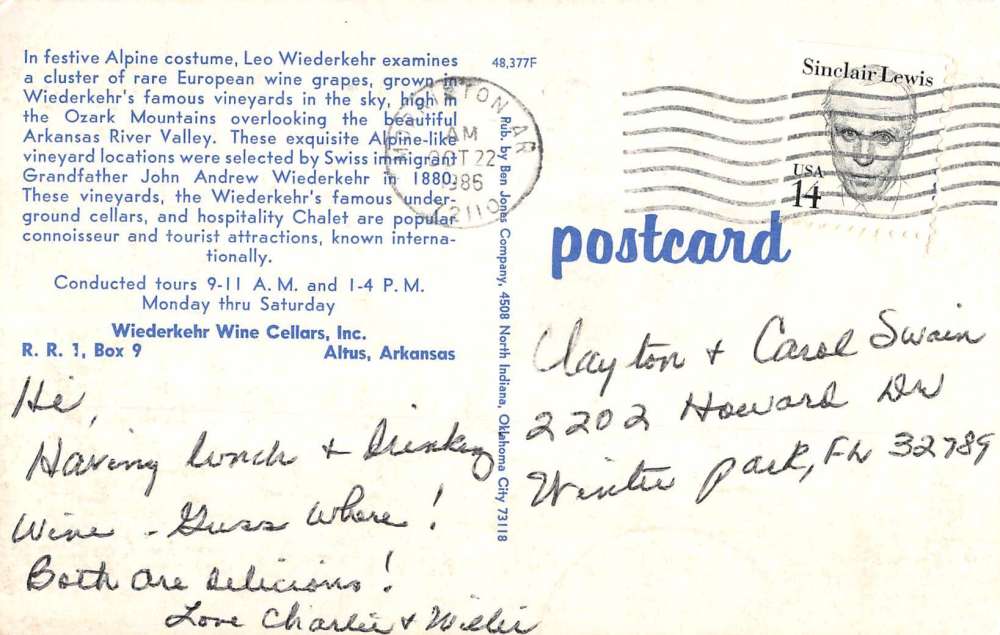 In festive Alpine costume, Leo Wiederkehr examines
a cluster of rare European wine grapes, grown in
Wiederkehr's famous vineyards in the sky, high in
the Ozark Mountains overlooking the beautiful
Arkansas River Valley. These exquisite Alpine-like
vineyard locations were selected by Swiss immigrant
Grandfather John Andrew Wiederkehr in 1880.
These vineyards, the Wiederkehr's famous under-
ground cellars, and hospitality Chalet are popular
connoisseur and tourist attractions, known interna-
tionally.
Conducted tours 9-11 A.M. and 1-4 P.M.
Monday thru Saturday
Wiederkehr Wine Cellars, Inc.
R. R. 1, Box 9 Altus, Arkansas
Hi,
Having lunch + drinking
wine - Guss where!
Both are delicious!
Love Charlie + Willie
48,377F
Pub. by Ben Jones Company, 4508 North Indiana, Oklahoma City 73118
AR
AM
OCT 22
1986
Sinclair Lewis
USA
14
postcard
Clayton + Carol Swain
2202 Howard Dr
Winter park, FL 32789